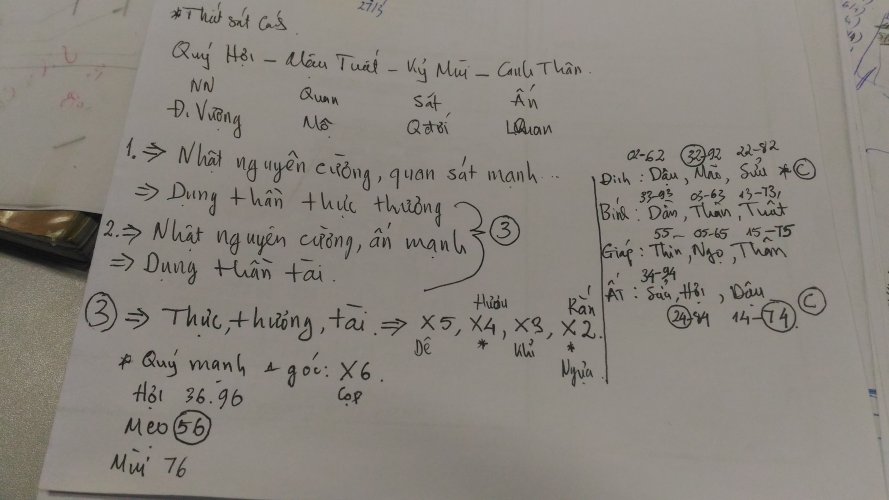 * Thất sát cách
Quý Hợi - Mậu Tuất - Kỷ Mùi - Canh Thân.
NN Quan Sát Ấn
Đ. Vượng Mộ Q đới LQuan
1. ⇒ Nhật nguyên cường, quan sát mạnh...
⇒ Dụng thần thực thương
2. ⇒ Nhật nguyên cường, ấn mạnh
⇒ Dụng thần tài.
③
③ ⇒ Thực, thương, tài ⇒ X5, X4, X3, X2.
Hươu Rắn
Dê * Khỉ *
Ngựa
* Quý mạnh gốc: X6.
Hợi 36.96 Cọp
Mèo 56
Mùi 76
02-62 32-92 22-82
Đinh: Dậu, Mão, Sửu * C
33-93 03-63 13-73,
Bính: Dần, Thân, Tuất
55- 05-65 15-75
Giáp: Thìn, Ngọ, Thân
34-94
Ất: Sửu, Hợi, Dậu C
24-84 14-74